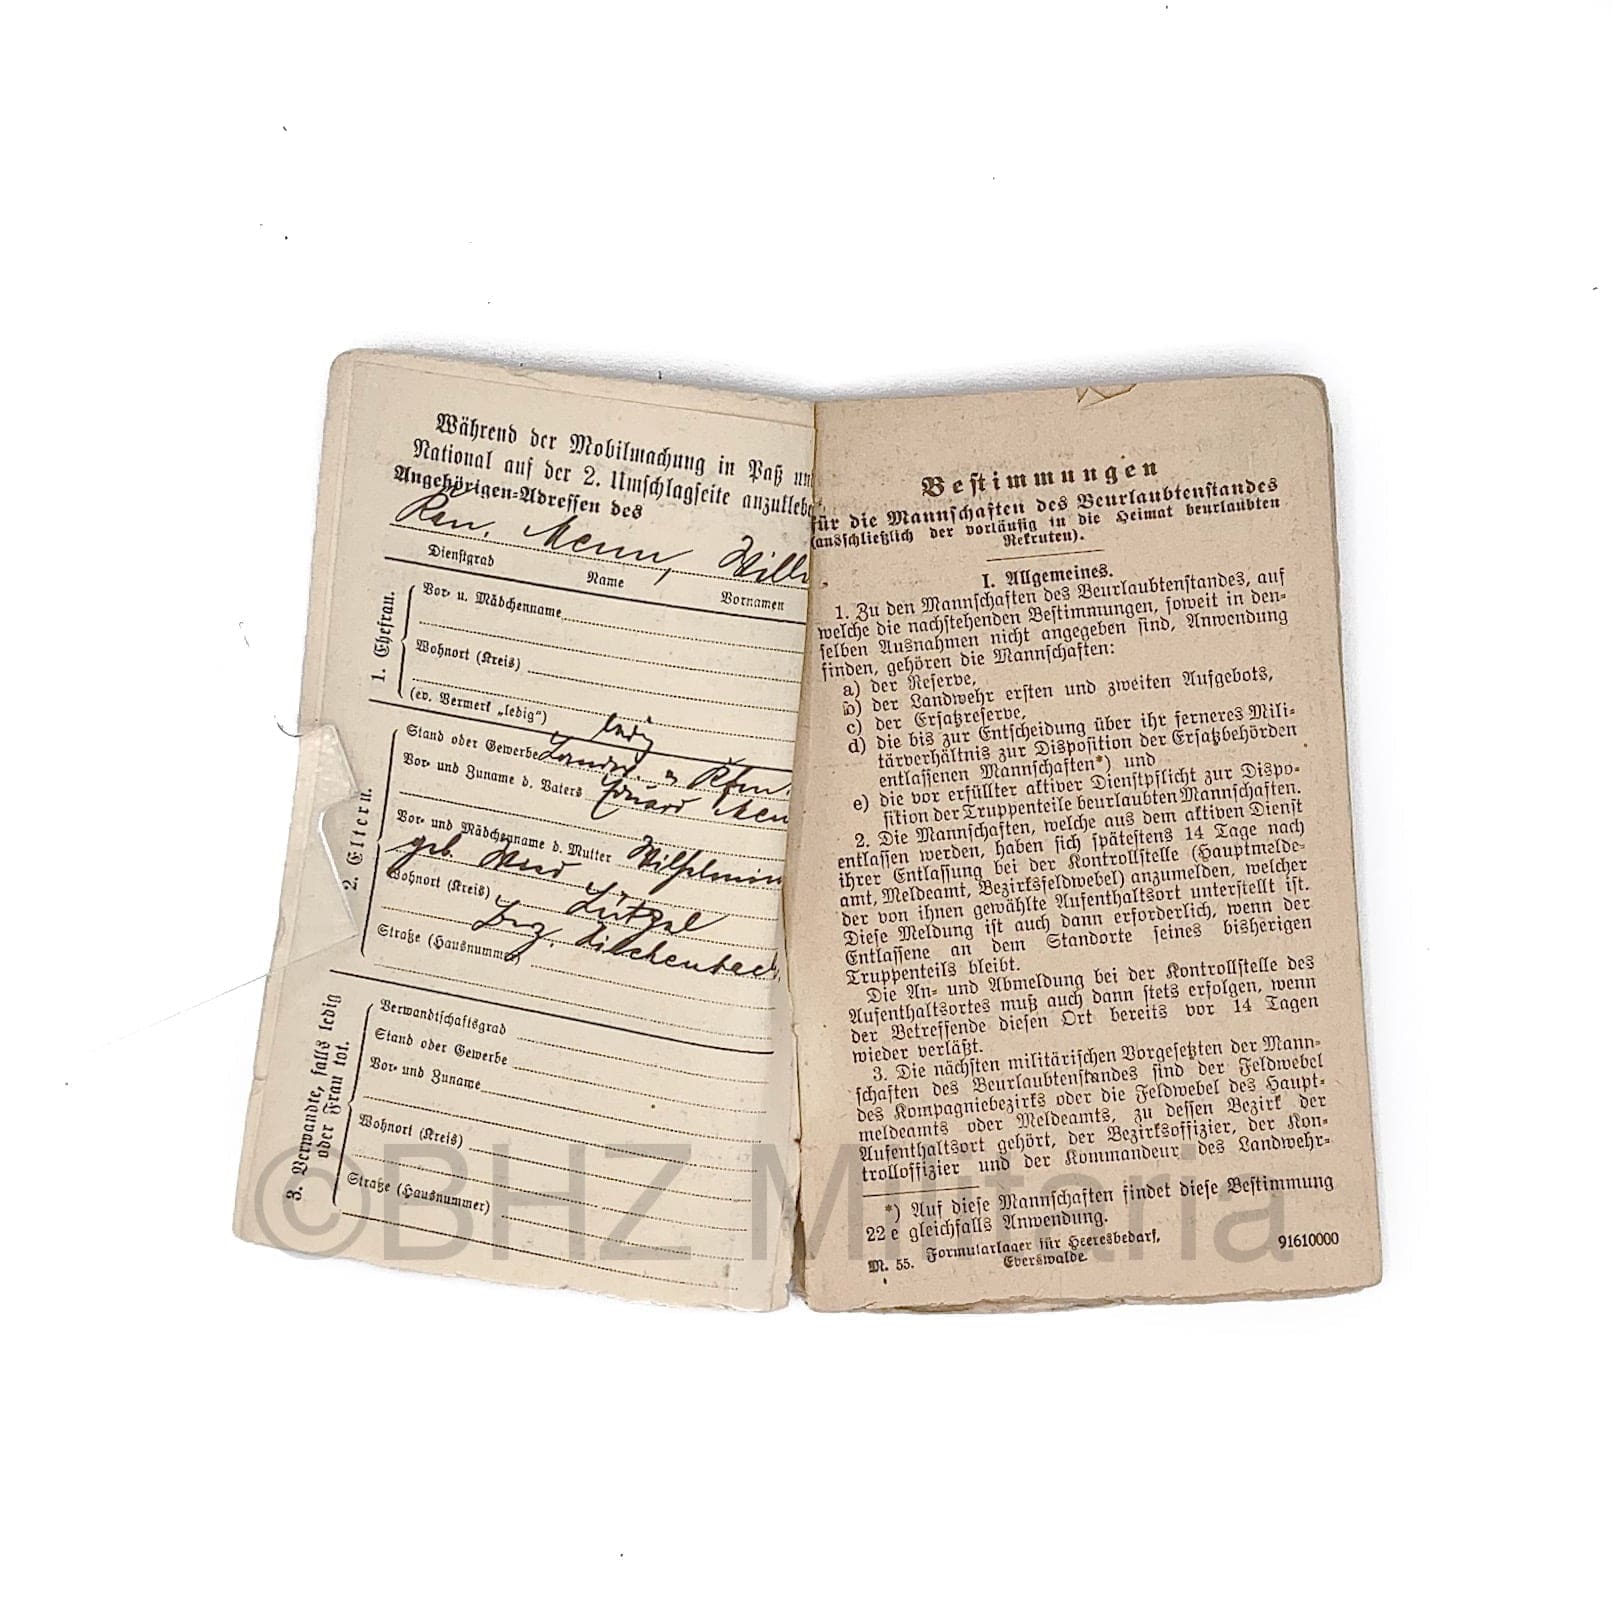 Während der Mobilmachung in Paß un
National auf der 2. Umschlagseite anzukleb
Angehörigen-Adressen des
Kan. Menn, Wilh
Dienstgrad Name Vornamen
1. Ehefrau.
Vor- u. Mädchenname
Wohnort (Kreis)
(ev. Vermerk „ledig") ledig
2. Eltern.
Stand oder Gewerbe
Vor- und Zuname d. Vaters Eduard Men
Vor- und Mädchenname d. Mutter Wilhelmin
geb.
Wohnort (Kreis) Lützel
Straße (Hausnummer)
3. Verwandte, falls ledig
oder Frau tot.
Verwandtschaftsgrad
Stand oder Gewerbe
Vor- und Zuname
Wohnort (Kreis)
Straße (Hausnummer)
Bestimmungen
für die Mannschaften des Beurlaubtenstandes
(ausschließlich der vorläufig in die Heimat beurlaubten
Rekruten).
I. Allgemeines.
1. Zu den Mannschaften des Beurlaubtenstandes, auf
welche die nachstehenden Bestimmungen, soweit in den-
selben Ausnahmen nicht angegeben sind, Anwendung
finden, gehören die Mannschaften:
a) der Reserve,
b) der Landwehr ersten und zweiten Aufgebots,
c) der Ersatzreserve,
d) die bis zur Entscheidung über ihr ferneres Mili-
tärverhältnis zur Disposition der Ersatzbehörden
entlassenen Mannschaften*) und
e) die vor erfüllter aktiver Dienstpflicht zur Dispo-
sition der Truppenteile beurlaubten Mannschaften.
2. Die Mannschaften, welche aus dem aktiven Dienst
entlassen werden, haben sich spätestens 14 Tage nach
ihrer Entlassung bei der Kontrollstelle (Hauptmelde-
amt, Meldeamt, Bezirksfeldwebel) anzumelden, welcher
der von ihnen gewählte Aufenthaltsort unterstellt ist.
Diese Meldung ist auch dann erforderlich, wenn der
Entlassene an dem Standorte seines bisherigen
Truppenteils bleibt.
Die An- und Abmeldung bei der Kontrollstelle des
Aufenthaltsortes muß auch dann stets erfolgen, wenn
der Betreffende diesen Ort bereits vor 14 Tagen
wieder verläßt.
3. Die nächsten militärischen Vorgesetzten der Mann-
schaften des Beurlaubtenstandes sind der Feldwebel
des Kompagniebezirks oder die Feldwebel des Haupt-
meldeamts oder Meldeamts, zu dessen Bezirk der
Aufenthaltsort gehört, der Bezirksoffizier, der Kon-
trolloffizier und der Kommandeur des Landwehr-
*) Auf diese Mannschaften findet diese Bestimmung
22 e gleichfalls Anwendung.
M. 55. Formularlager für Heeresbedarf, 91610000
Eberswalde.
©BHZ Militaria